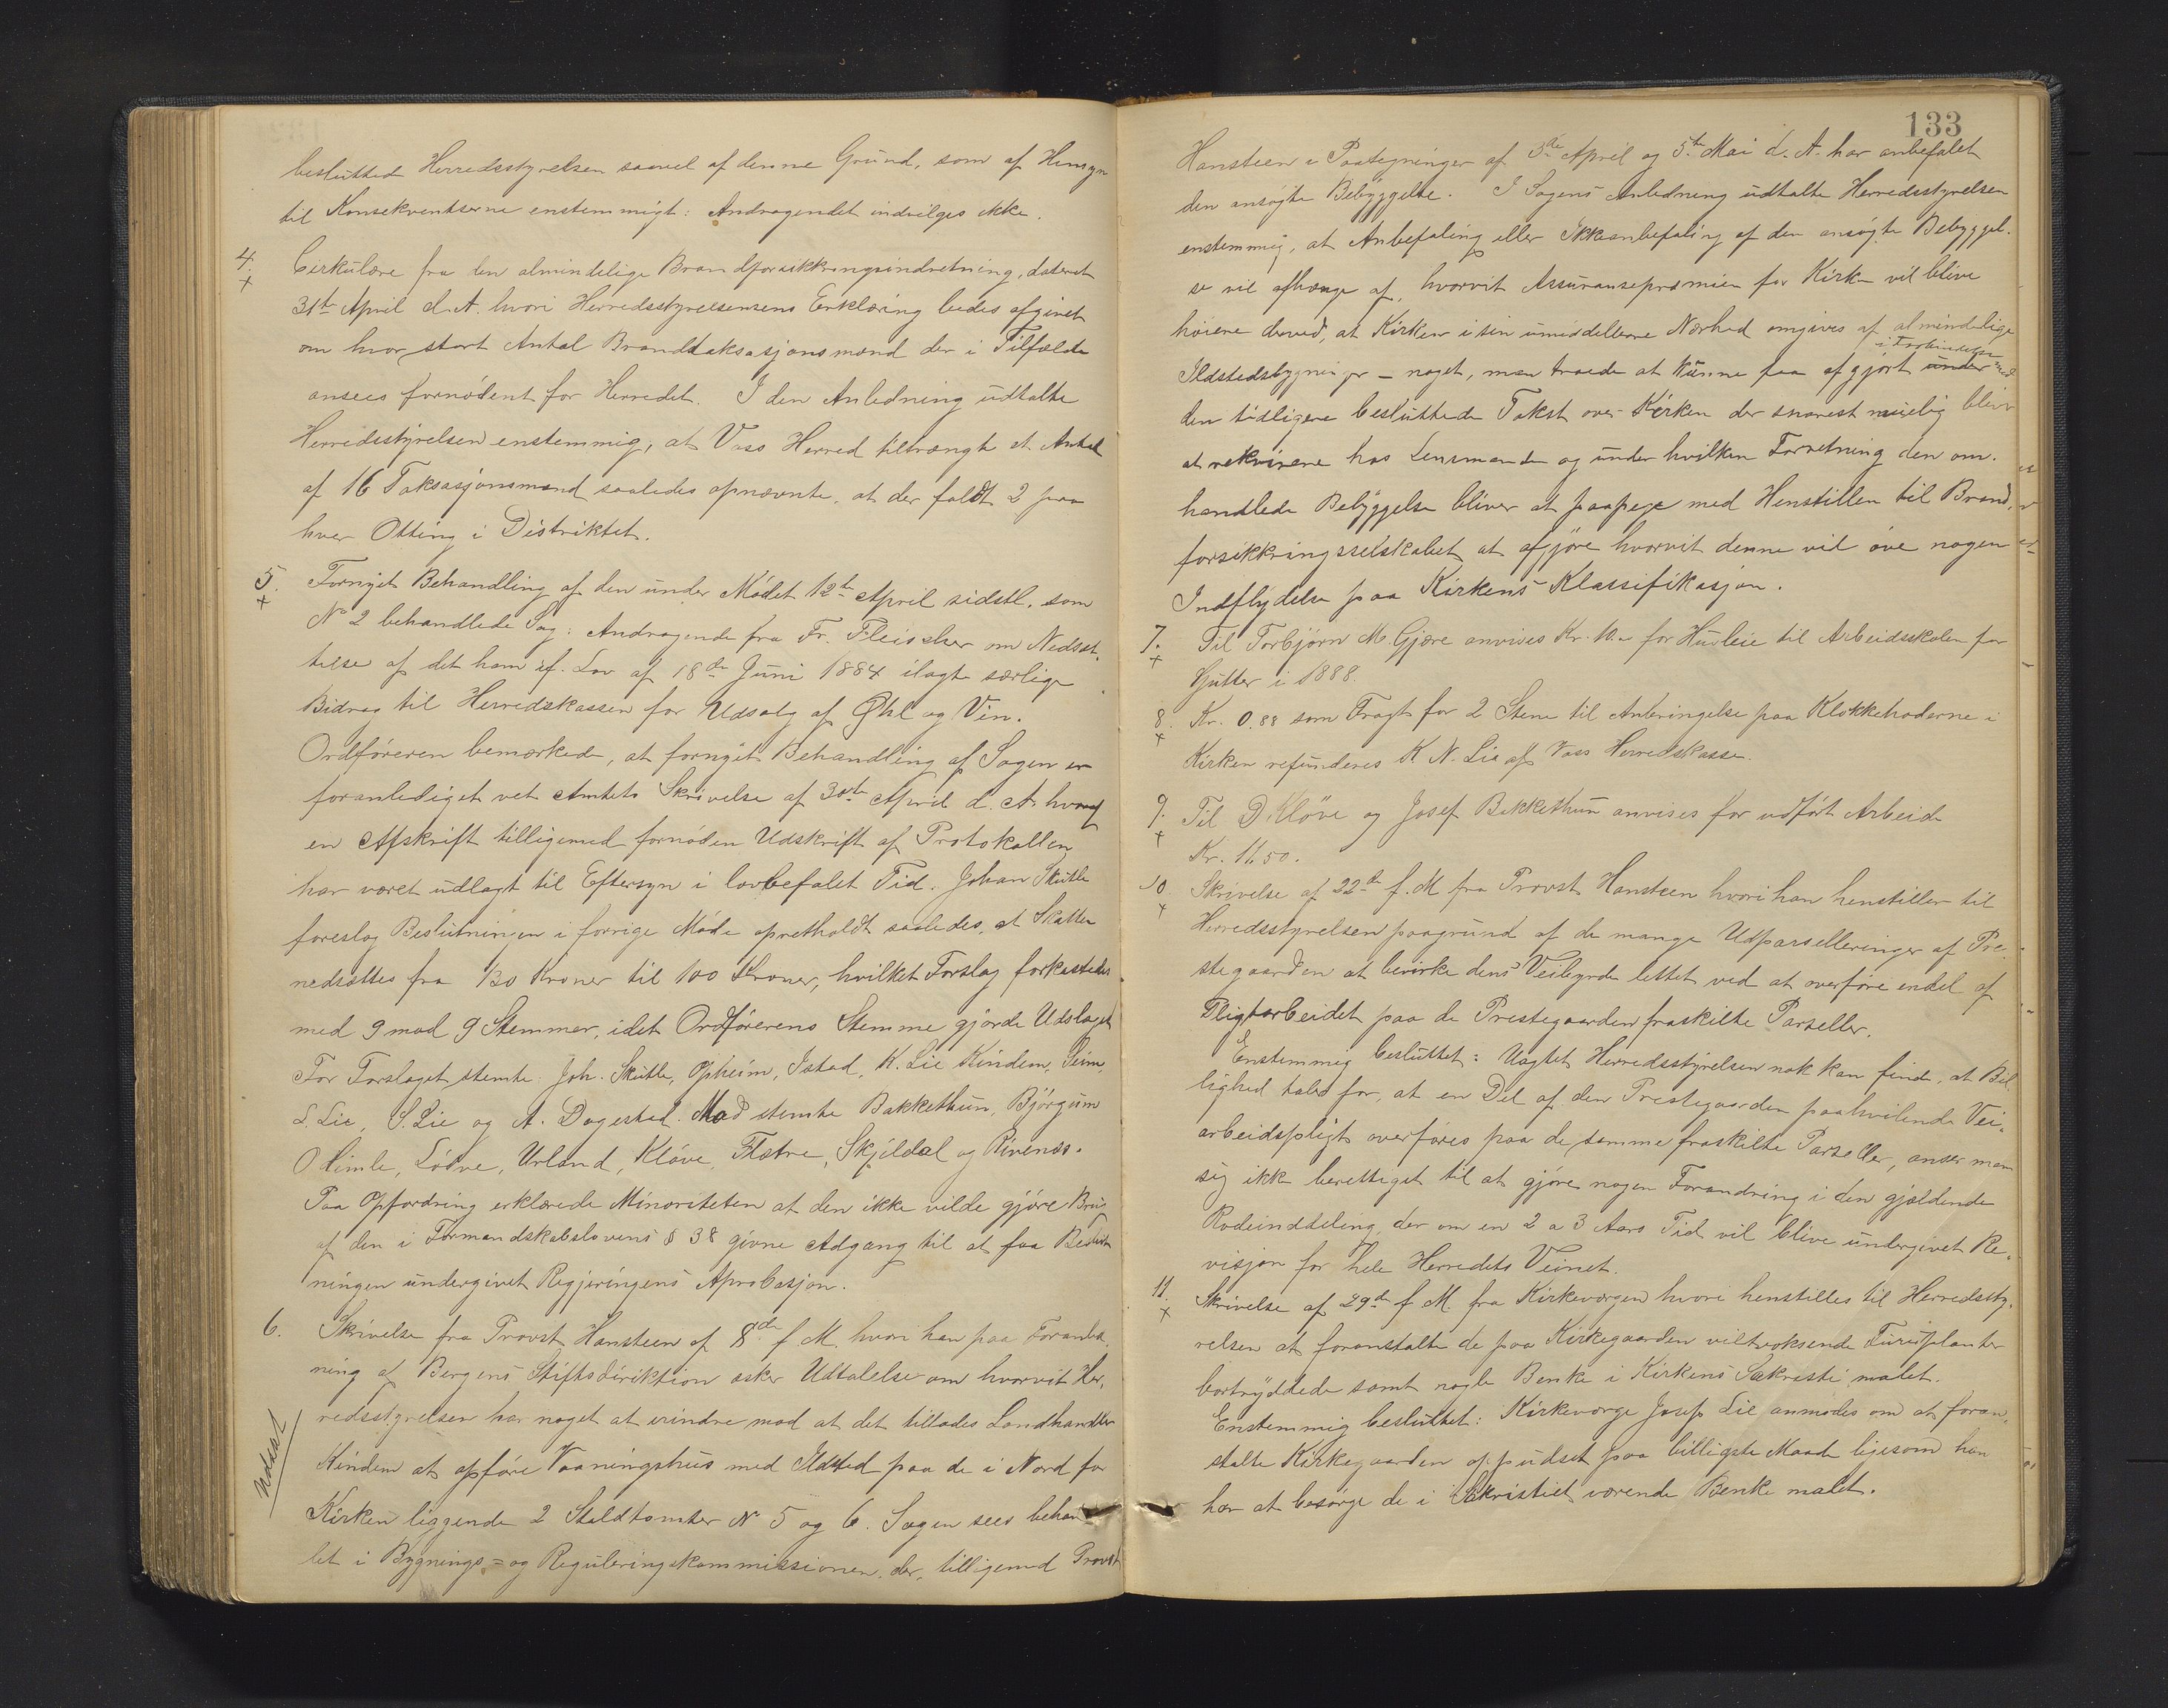 beslutted Herredsstyrelsen saavel af denne Grund, som af Hensyn
til Konsekventserne enstemmigt: Andragendet indvilges ikke.
4. Cirkulære fra den almindelige Brandforsikkringsindretning, dateret
+
31te April d. A. hvori Herredsstyrelsensens Erklæring bedes afgivet
om hvor stort Antal Brandtaksasjonsmænd der i Tilfælde
ansees fornødent for Herredet. I den Anledning udtalte
Herredsstyrelsen enstemmig, at Voss Herred tiltrængte et Antal
af 16 Taksasjonsmænd saaledes opnævnte, at der faldt 2 paa
hver Otting i Distriktet.
5. Fornyet Behandling af den under Mødet 12te April sidstl. som
+
No 2 behandlede Sag: Andragende fra Fr. Fleischer om Nedsæt-
telse af det ham if. Lov af 18de Juni 1884 ilagte særlige
Bidrag til Herredskassen for Udsalg af Øhl og Vin.
Ordføreren bemærkede, at fornyet Behandling af Sagen er
foranlediget vet Amtets Skrivelse af 30te April d. A. hvoraf
en Afskrift tilligemed fornøden Udskrift af Protokollen
har været udlagt til Eftersyn i lovbefalet Tid. Johan Skutle
foreslog Beslutningen i forrige Møde opretholdt saaledes, at Skatten
nedsættes fra 130 Kroner til 100 Kroner, hvilket Forslag forkastedes
med 9 mod 9 Stemmer, idet Ordførerens Stemme gjorde Udslaget
For Forslaget stemte Joh. Skutle, Opheim, Istad, K. Lie Kindem, Seim,
L. Lie, S. Lie og A. Dagestad. Mod stemte Bakkethun, Bjørgum
O Himle, Løve, Urland, Kløve, Flatre, Skjeldal og Rivenæs.
Paa Opfordring erklærede Minoriteten at den ikke vilde gjøre Brug
af den i Formandskabslovens § 38 givne Adgang til at faa Beslut
ningen undergivet Regjeringens Aprobasjon.
6. Skrivelse fra Provst Hansteen af 8de f. M. hvori han paa Foranled-
ning af Bergens Stiftsdirektion æsker Udtalelse om hvorvit Her-
redsstyrelsen har noget at erindre mod at det tillades Landhandler
Udsat
Kindem at opføre Vaaningshus med Ildsted paa de i Nord for
Kirken liggende 2 Staldtomter No 5 og 6. Sagen sees behand
let i Bygnings- og Reguleringskommissionen, der, tilligemed Provst
133
Hansteen i Paategninger af 3die April og 5te Mai d. A. har anbefalet
den ansøgte Bebyggelse. I Sagens Anledning udtalte Herredsstyrelsen
enstemmig, at Anbefaling eller Ikkeanbefaling af den ansøgte Bebyggel-
se vil afhænge af, hvorvit Assuransepræmien for Kirken vil blive
høiere derved, at Kirken i sin umiddelbare Nærhed omgives af almindelige
Ildstedsbygninger – noget, man troede at kunne faa afgjort under i Forbindelse med
den tidligere besluttede Takst over Kirken der snarest muelig bliver
at rekvirere hos Lensmanden og under hvilken Forretning den om-
handlede Bebyggelse bliver at paapege med Henstillen til Brand-
forsikkringsselskabet at afgjøre hvorvit denne vil øve nogen
Indflydelse paa Kirkens Klassifikasjon.
7. Til Torbjørn M. Gjære anvises Kr. 10.- for Husleie til Arbeidsskolen for
+
Gutter i 1888.
8. Kr. 0.88 som Fragt for 2 Stene til Anbringelse paa Klokkelodderne i
+
Kirken refunderes K N. Lie af Voss Herredskasse.
9. Til D. Kløve og Josef Bakkethun anvises for udført Arbeide
+
Kr. 11.50.
10 Skrivelse af 22de f. M fra Provst Hansteen hvori han henstiller til
+
Herredsstyrelsen paagrund af de mange Udparselleringer af Pre-
stegaarden at bevirke dens Veibyrde lettet ved at overføre endel af
Pligtarbeidet paa de Prestegaarden fraskilte Parseller.
Enstemmig besluttet: Uagtet Herredsstyrelsen nok kan finde, at Bil-
lighed taler for, at en Del af den Prestegaarden paahvilende Vei-
arbeidspligt overføres paa de samme fraskilte Parseller, anser man
sig ikke berettiget til at gjøre nogen Forandring i den gjældende
Rodeinddeling, der om en 2 a 3 Aars Tid vil blive undergivet Re-
visjon for hele Herredets Veinet.
11. Skrivelse af 29de f. M. fra Kirkeværgen hvori henstilles til Herredssty-
+
relsen at foranstalte de paa Kirkegaarden viltvoksende Furuplanter
bortryddede samt nogle Benke i Kirkens Sakristi malet.
Enstemmig besluttet: Kirkeværge Josef Lie anmodes om at foran-
stalte Kirkegaarden oppudset paa billigste Maade ligesom han
har at besørge de i Sakristiet værende Benke malet.